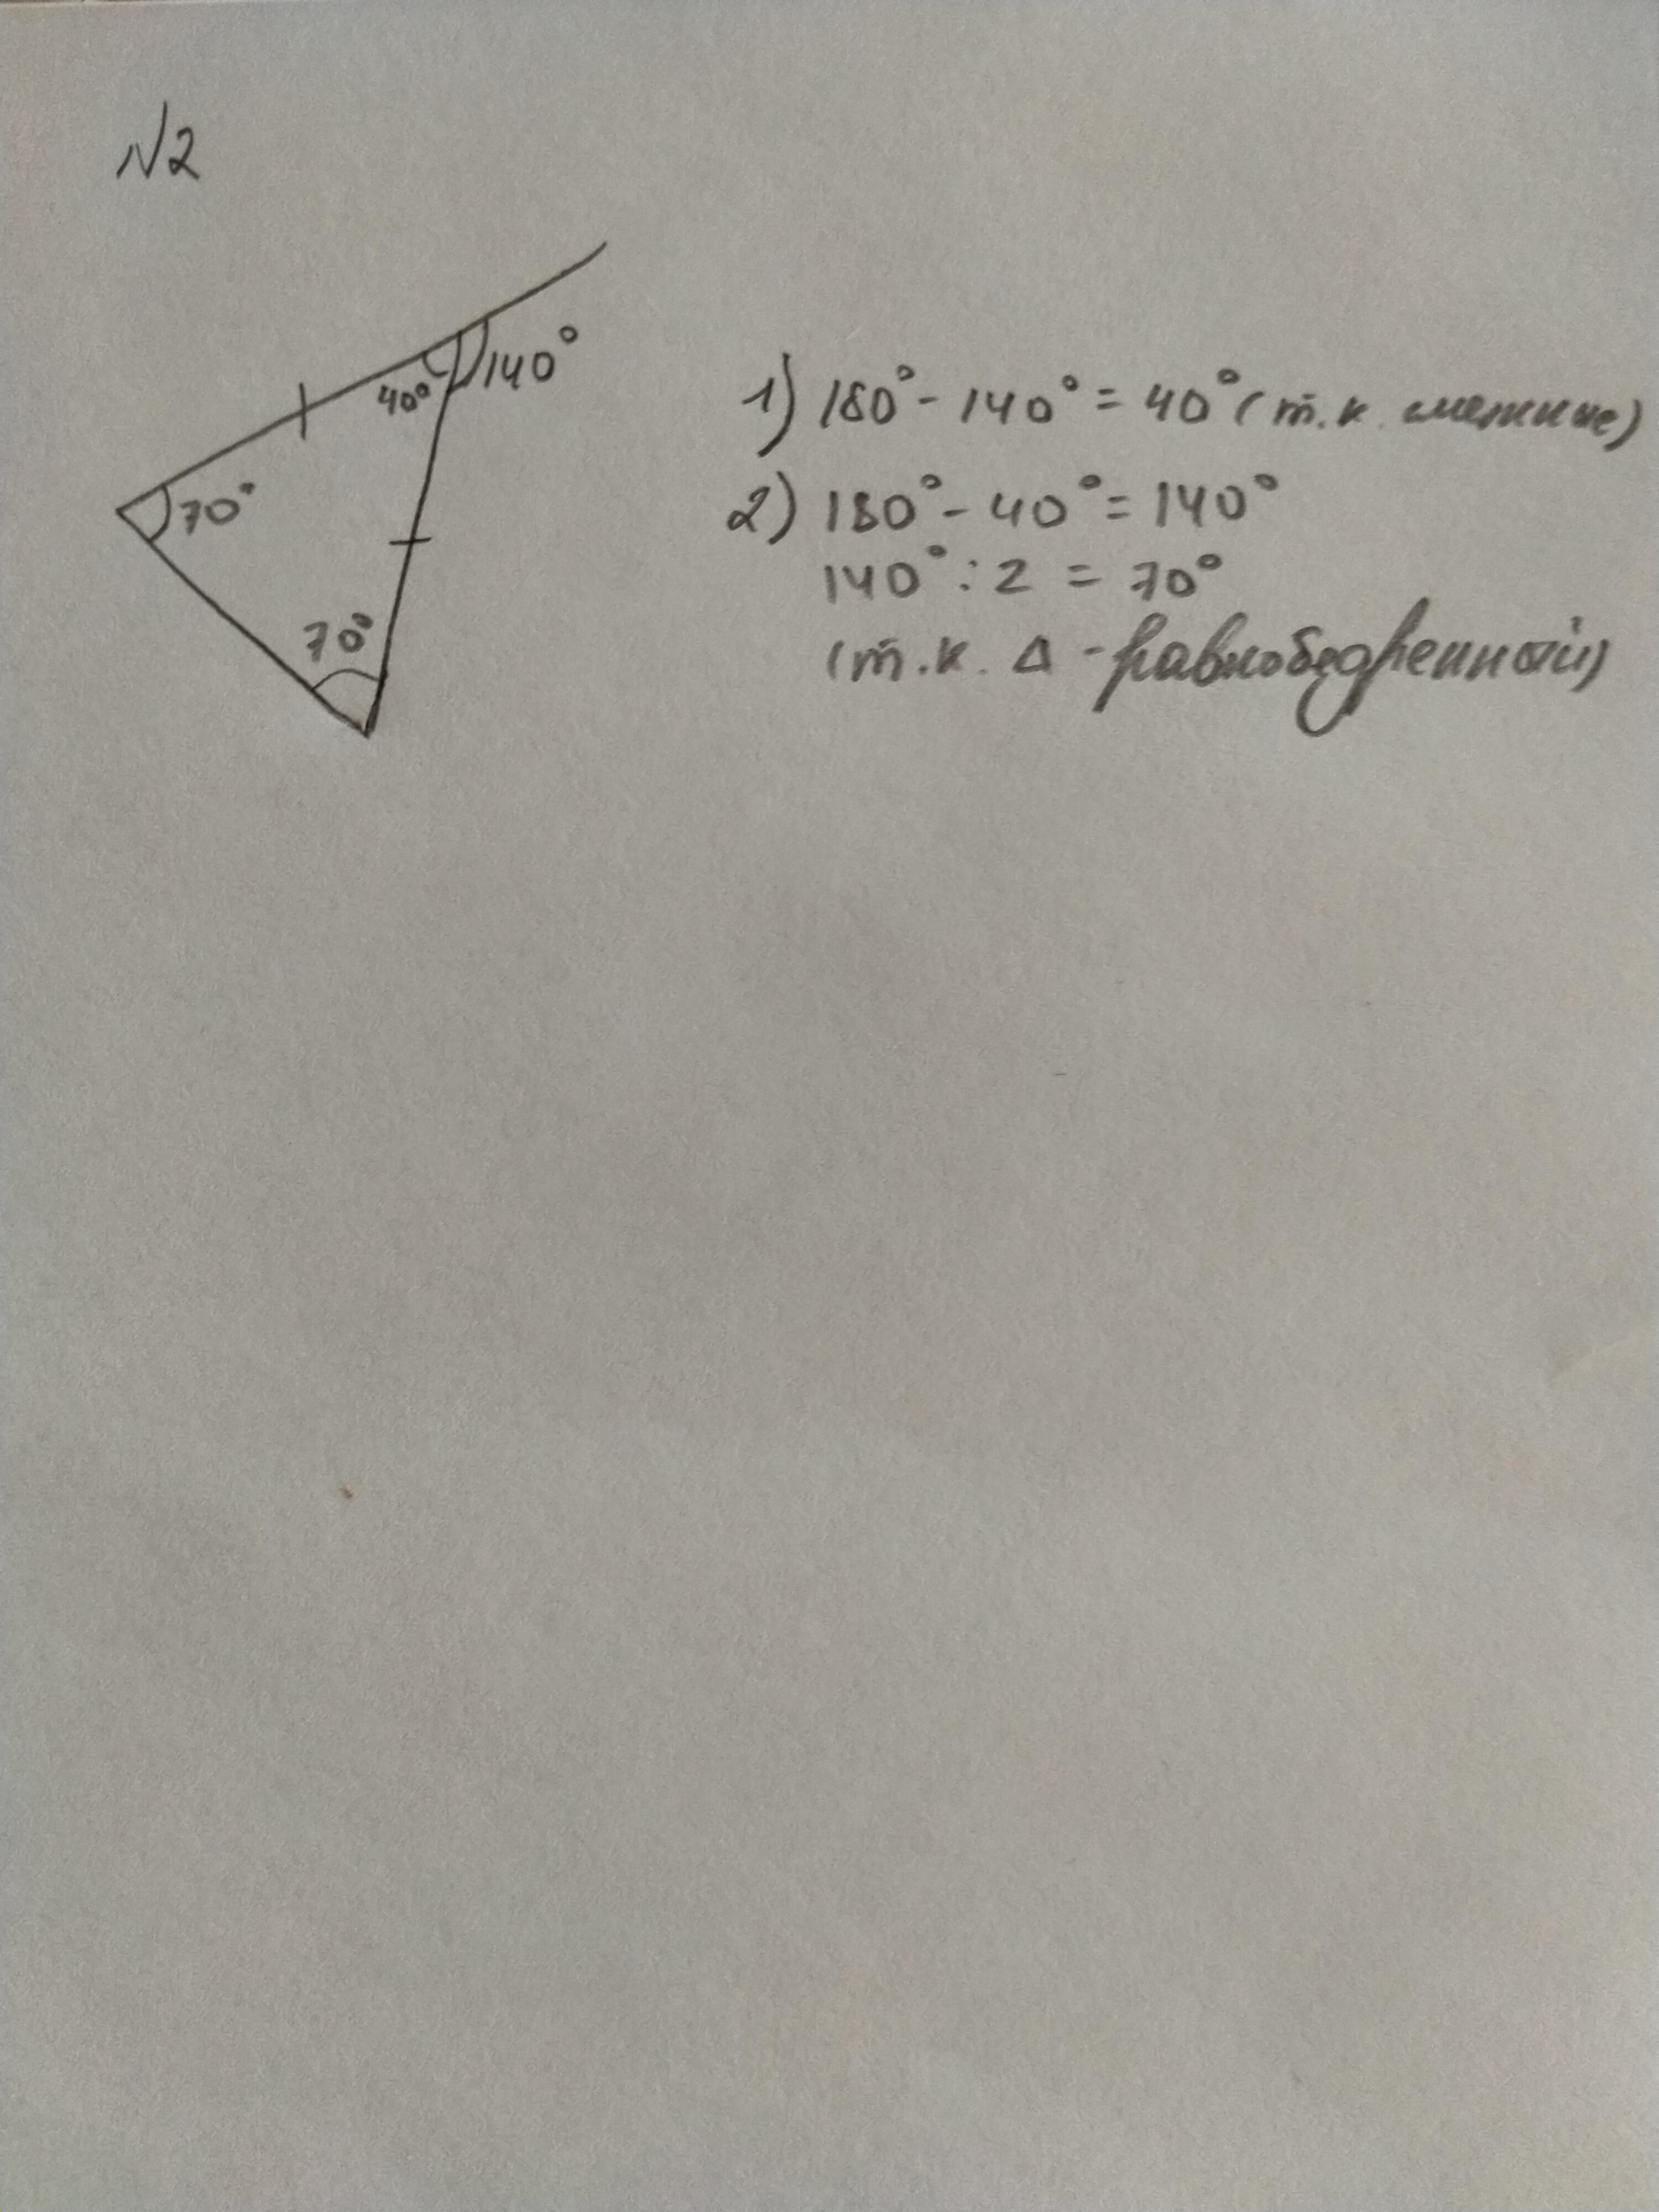 №2
140°
40°
70°
70°
1) 180° - 140° = 40° (т.к. смежные)
2) 180° - 40° = 140°
140° : 2 = 70°
(т.к. Δ - равнобедренный)